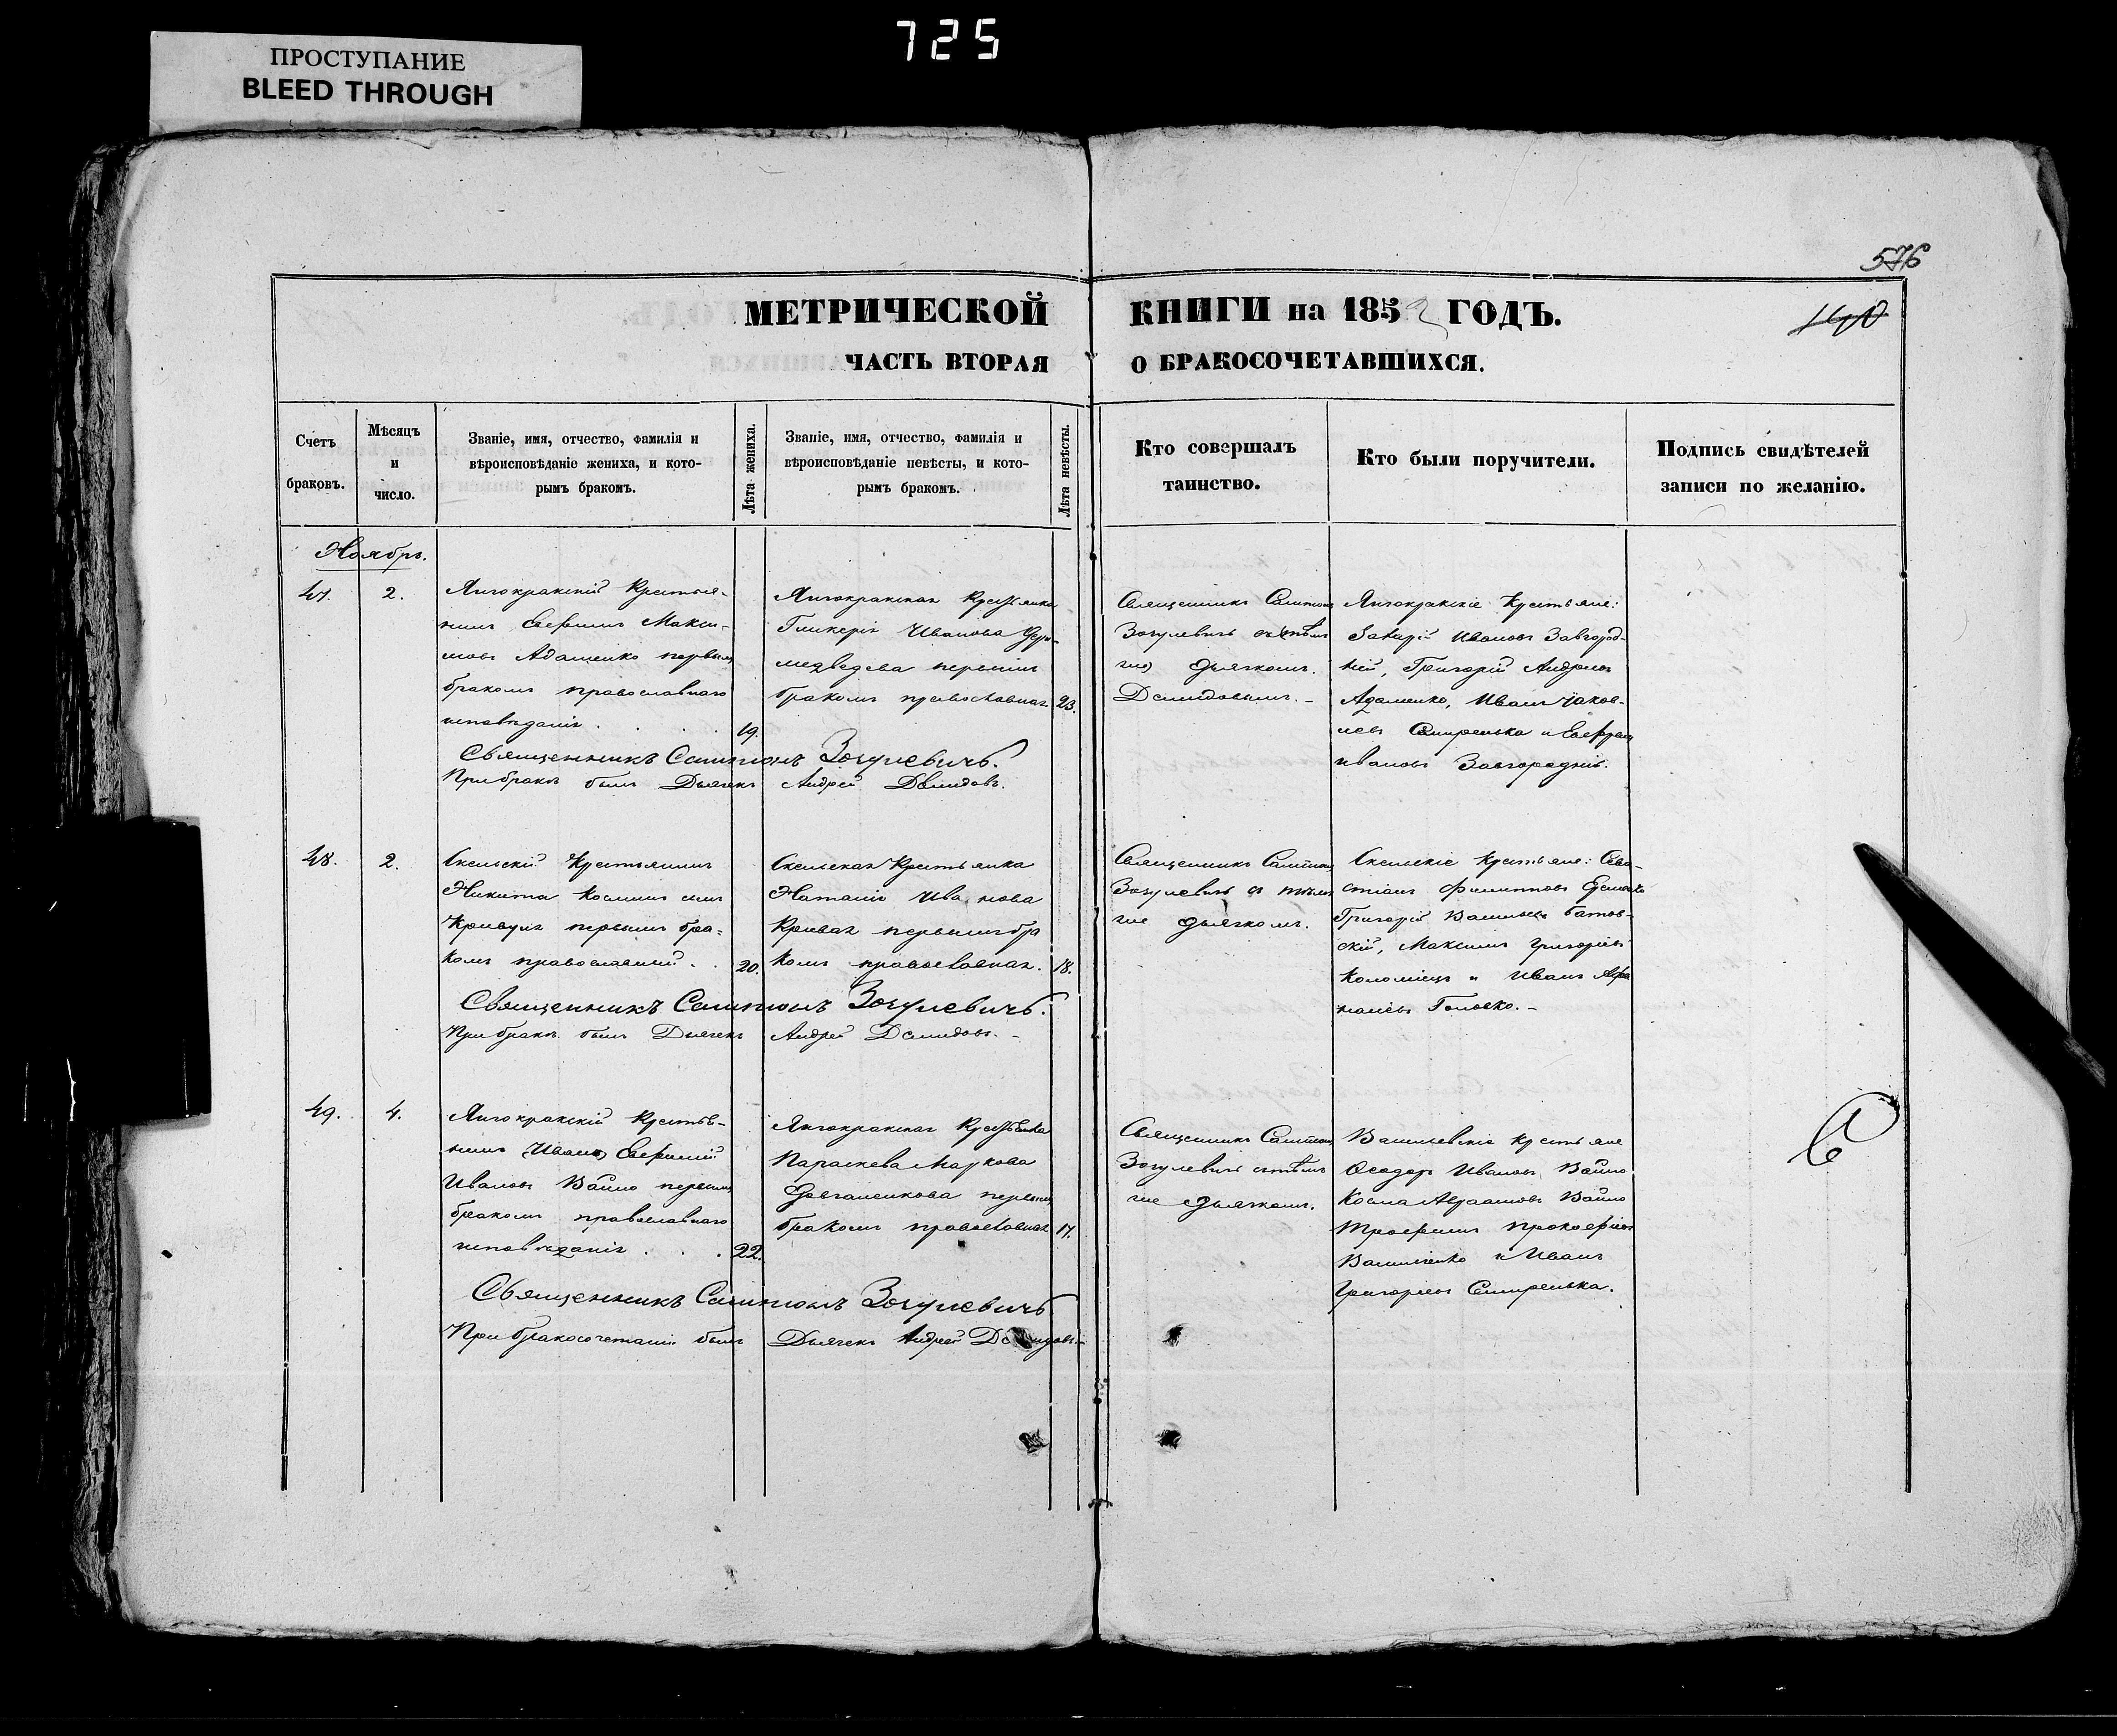 725
ПРОСТУПАНИЕ
BLEED THROUGH
576
МЕТРИЧЕСКОЙ КНИГИ на 1852 ГОДЪ.
ЧАСТЬ ВТОРАЯ О БРАКОСОЧЕТАВШИХСЯ.
Счетъ
браковъ.
Мѣсяцъ
и
число.
Званіе, имя, отчество, фамилія и
вѣроисповѣданіе жениха, и кото-
рымъ бракомъ.
Лѣта жениха.
Званіе, имя, отчество, фамилія и
вѣроисповѣданіе невѣсты, и кото-
рымъ бракомъ.
Лѣта невѣсты.
Кто совершалъ
таинство.
Кто были поручители.
Подпись свидѣтелей
записи по желанію.
Ноябрь.
47.
2.
Янчокракскій Крестья-
нинъ Ефимъ Макси-
мовъ Адаменко первымъ
бракомъ православнаго
исповѣданія
19.
Янчокракская Крестьянка
Гликерія Иванова
медведева первымъ
бракомъ православная
23.
Священникъ Самсонъ
Зогулевичъ съ
дьячкомъ
Демидовымъ.-
Янчокракскіе Крестьяне:
Захарій Ивановъ Завгород-
ній, Григорій Андреевъ
Адаменко, Иванъ Яков-
левъ
Ивановъ Завгородній.
Священникъ Самсонъ Зогулевичъ.
При бракѣ былъ Дьячекъ Андрей Демидовъ.
48.
2.
Скельскій Крестьянинъ
Никита Косминъ сынъ
Кривуля первымъ бра-
комъ православный
20.
Скельская Крестьянка
Наталія Иванова
Кривая первымъ бра
комъ православная.
18.
Священникъ Самсонъ
Зогулевичъ съ тѣмъ
же дьячкомъ.
Скельскіе Крестьяне: Сева-
стіанъ Филипповъ
Григорій Васильевъ Батов-
скій, Максимъ Григорьевъ
Коломіецъ и Иванъ Афа
насіевъ Головко.-
Священникъ Самсонъ Зогулевичъ.
При бракѣ былъ Дьячекъ Андрей Демидовъ.-
49.
4.
Янчокракскій Крестья-
нинъ Ефимій
Ивановъ Вайло первымъ
бракомъ православнаго
исповѣданія
22.
Янчокракская Крестьянка
Параскева Маркова
Довгаленкова первымъ
бракомъ православная
17.
Священникъ Самсонъ
Зогулевичъ съ тѣмъ
же дьячкомъ.
Васильевскіе Крестьяне
Феодоръ Ивановъ Вайло
Косма Авраамовъ Вайло
Трофимъ Прокофіевъ
Василенко и Иванъ
Григорьевъ
Священникъ Самсонъ Зогулевичъ
При бракосочетаніи былъ Дьячекъ Андрей Демидовъ.-